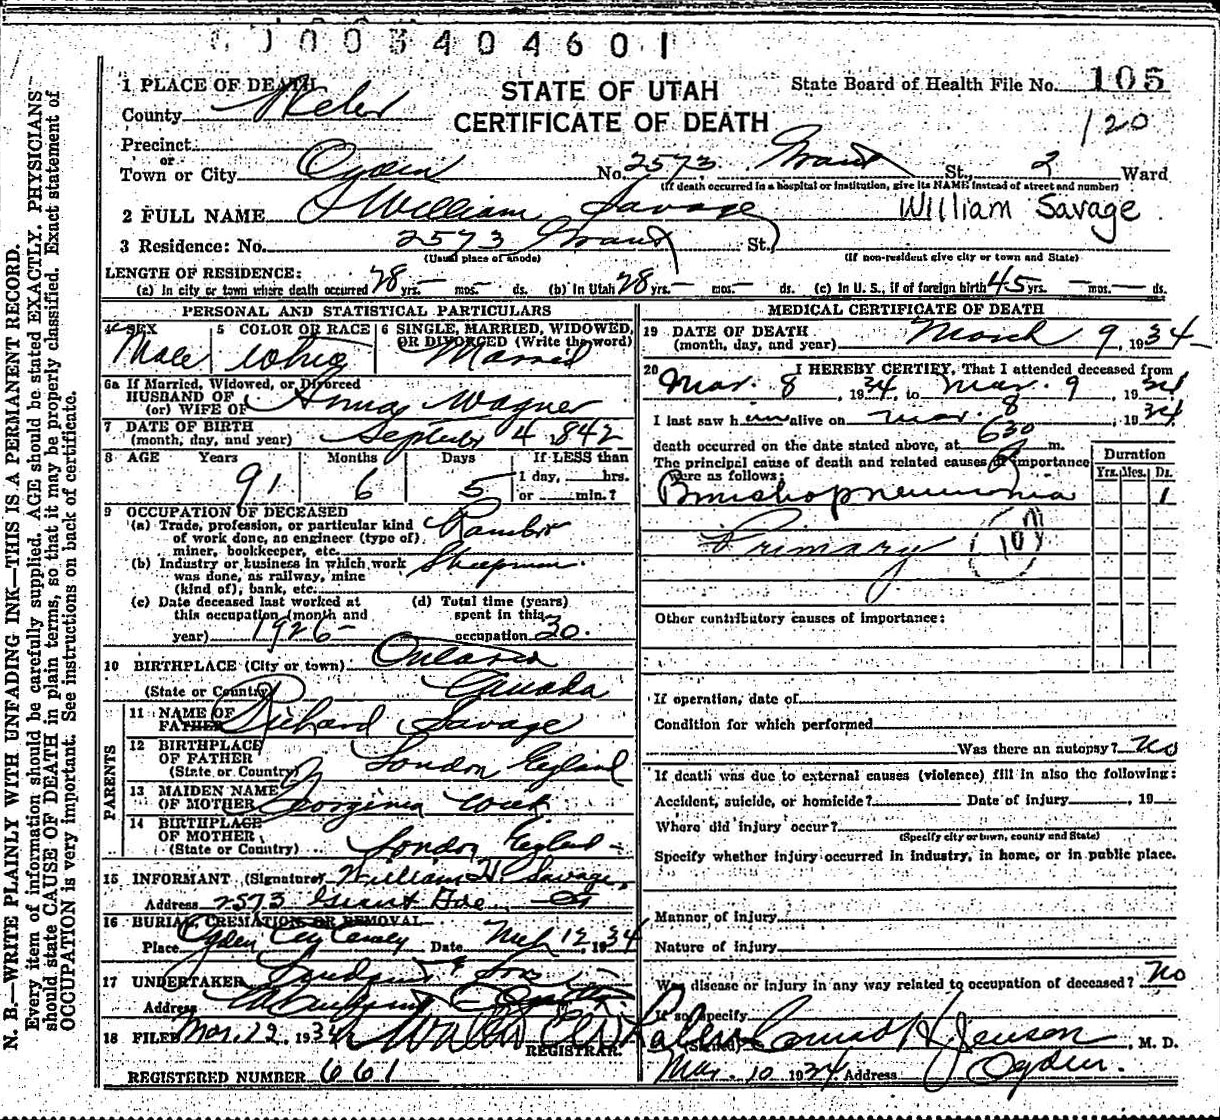 0003404601
1 PLACE OF DEATH
STATE OF UTAH
CERTIFICATE OF DEATH
State Board of Health File No. 105
120
County Weber
Precinct
or
Town or City Ogden No. 2573 Grant St., 2 Ward
(If death occurred in a hospital or institution, give its NAME instead of street and number)
2 FULL NAME William Savage William Savage
3 Residence: No. 2573 Grant St.,
(Usual place of abode) (If non-resident give city or town and State)
LENGTH OF RESIDENCE:
(a) In city or town where death occurred 28 yrs. — mos. — ds. (b) In Utah 28 yrs. — mos. — ds. (c) In U. S., if of foreign birth 45 yrs. — mos. — ds.
PERSONAL AND STATISTICAL PARTICULARS
4 SEX Male
5 COLOR OR RACE White
6 SINGLE, MARRIED, WIDOWED, OR DIVORCED (Write the word) Married
6a If Married, Widowed, or Divorced
HUSBAND OF
(or) WIFE OF Anna Wagner
7 DATE OF BIRTH
(month, day, and year) September 4 1842
8 AGE Years Months Days If LESS than
91 6 5 1 day, hrs.
or min.?
9 OCCUPATION OF DECEASED
(a) Trade, profession, or particular kind
of work done, as engineer (type of)
miner, bookkeeper, etc.
(b) Industry or business in which work
was done, as railway, mine
(kind of), bank, etc.
(c) Date deceased last worked at
this occupation (month and
year) 1926
(d) Total time (years)
spent in this
occupation 30.
10 BIRTHPLACE (City or town) Ontario
(State or Country) Canada
PARENTS
11 NAME OF
FATHER Richard Savage
12 BIRTHPLACE
OF FATHER
(State or Country) London England
13 MAIDEN NAME
OF MOTHER Georginia
14 BIRTHPLACE
OF MOTHER
(State or Country) London England
15 INFORMANT (Signature) William H Savage
Address 2573 Grant Ave
16 BURIAL, CREMATION OR REMOVAL
Place Ogden City Date Mch 12, 1934
17 UNDERTAKER & Sons
Address
18 FILED Mar. 12, 1934
REGISTRAR.
REGISTERED NUMBER 661
MEDICAL CERTIFICATE OF DEATH
19 DATE OF DEATH
(month, day, and year) March 9, 1934
20 I HEREBY CERTIFY, That I attended deceased from
Mar. 8, 1934, to Mar. 9, 1934
I last saw him alive on Mar. 8, 1934
death occurred on the date stated above, at 630 m.
The principal cause of death and related causes of importance
were as follows:
Duration
Yrs. Mos. Ds.
Bronchopneumonia 1
Primary 107
Other contributory causes of importance:
If operation, date of
Condition for which performed
Was there an autopsy? no
If death was due to external causes (violence) fill in also the following:
Accident, suicide, or homicide? Date of injury , 19
Where did injury occur?
(Specify city or town, county and State)
Specify whether injury occurred in industry, in home, or in public place.
Manner of injury
Nature of injury
Was disease or injury in any way related to occupation of deceased? no
If so, specify
(Signed) Conrad H Jenson, M. D.
Mar. 10 1934 Address Ogden.
N. B.—WRITE PLAINLY WITH UNFADING INK—THIS IS A PERMANENT RECORD.
Every item of information should be carefully supplied. AGE should be stated EXACTLY. PHYSICIANS
should state CAUSE OF DEATH in plain terms, so that it may be properly classified. Exact statement of
OCCUPATION is very important. See instructions on back of certificate.